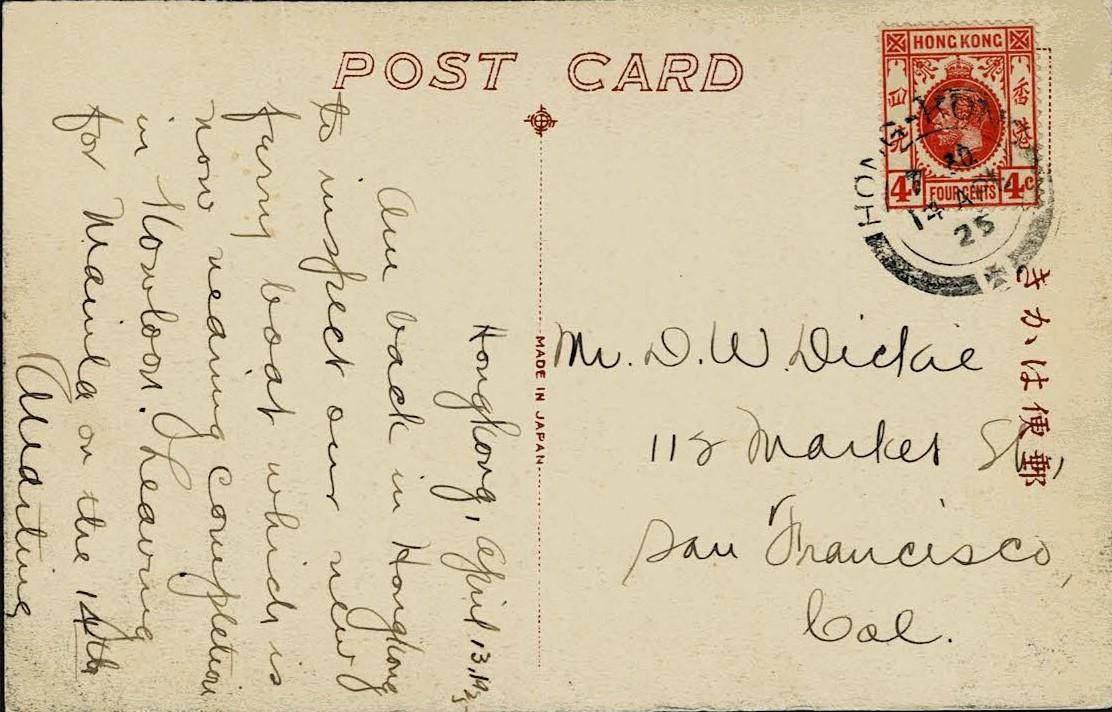 POST CARD
HONG KONG
香港
四
4
FOUR CENTS
4c
14 A
25
きかは便郵
MADE IN JAPAN
Hongkong, April 13, 1925
Am back in Hongkong
to inspect our new
ferry boat which is
now nearing completion
in Kowloon. Leaving
for Manila on the 14th
Mr. D. W. Dickie
112 Market St.,
San Francisco,
Cal.